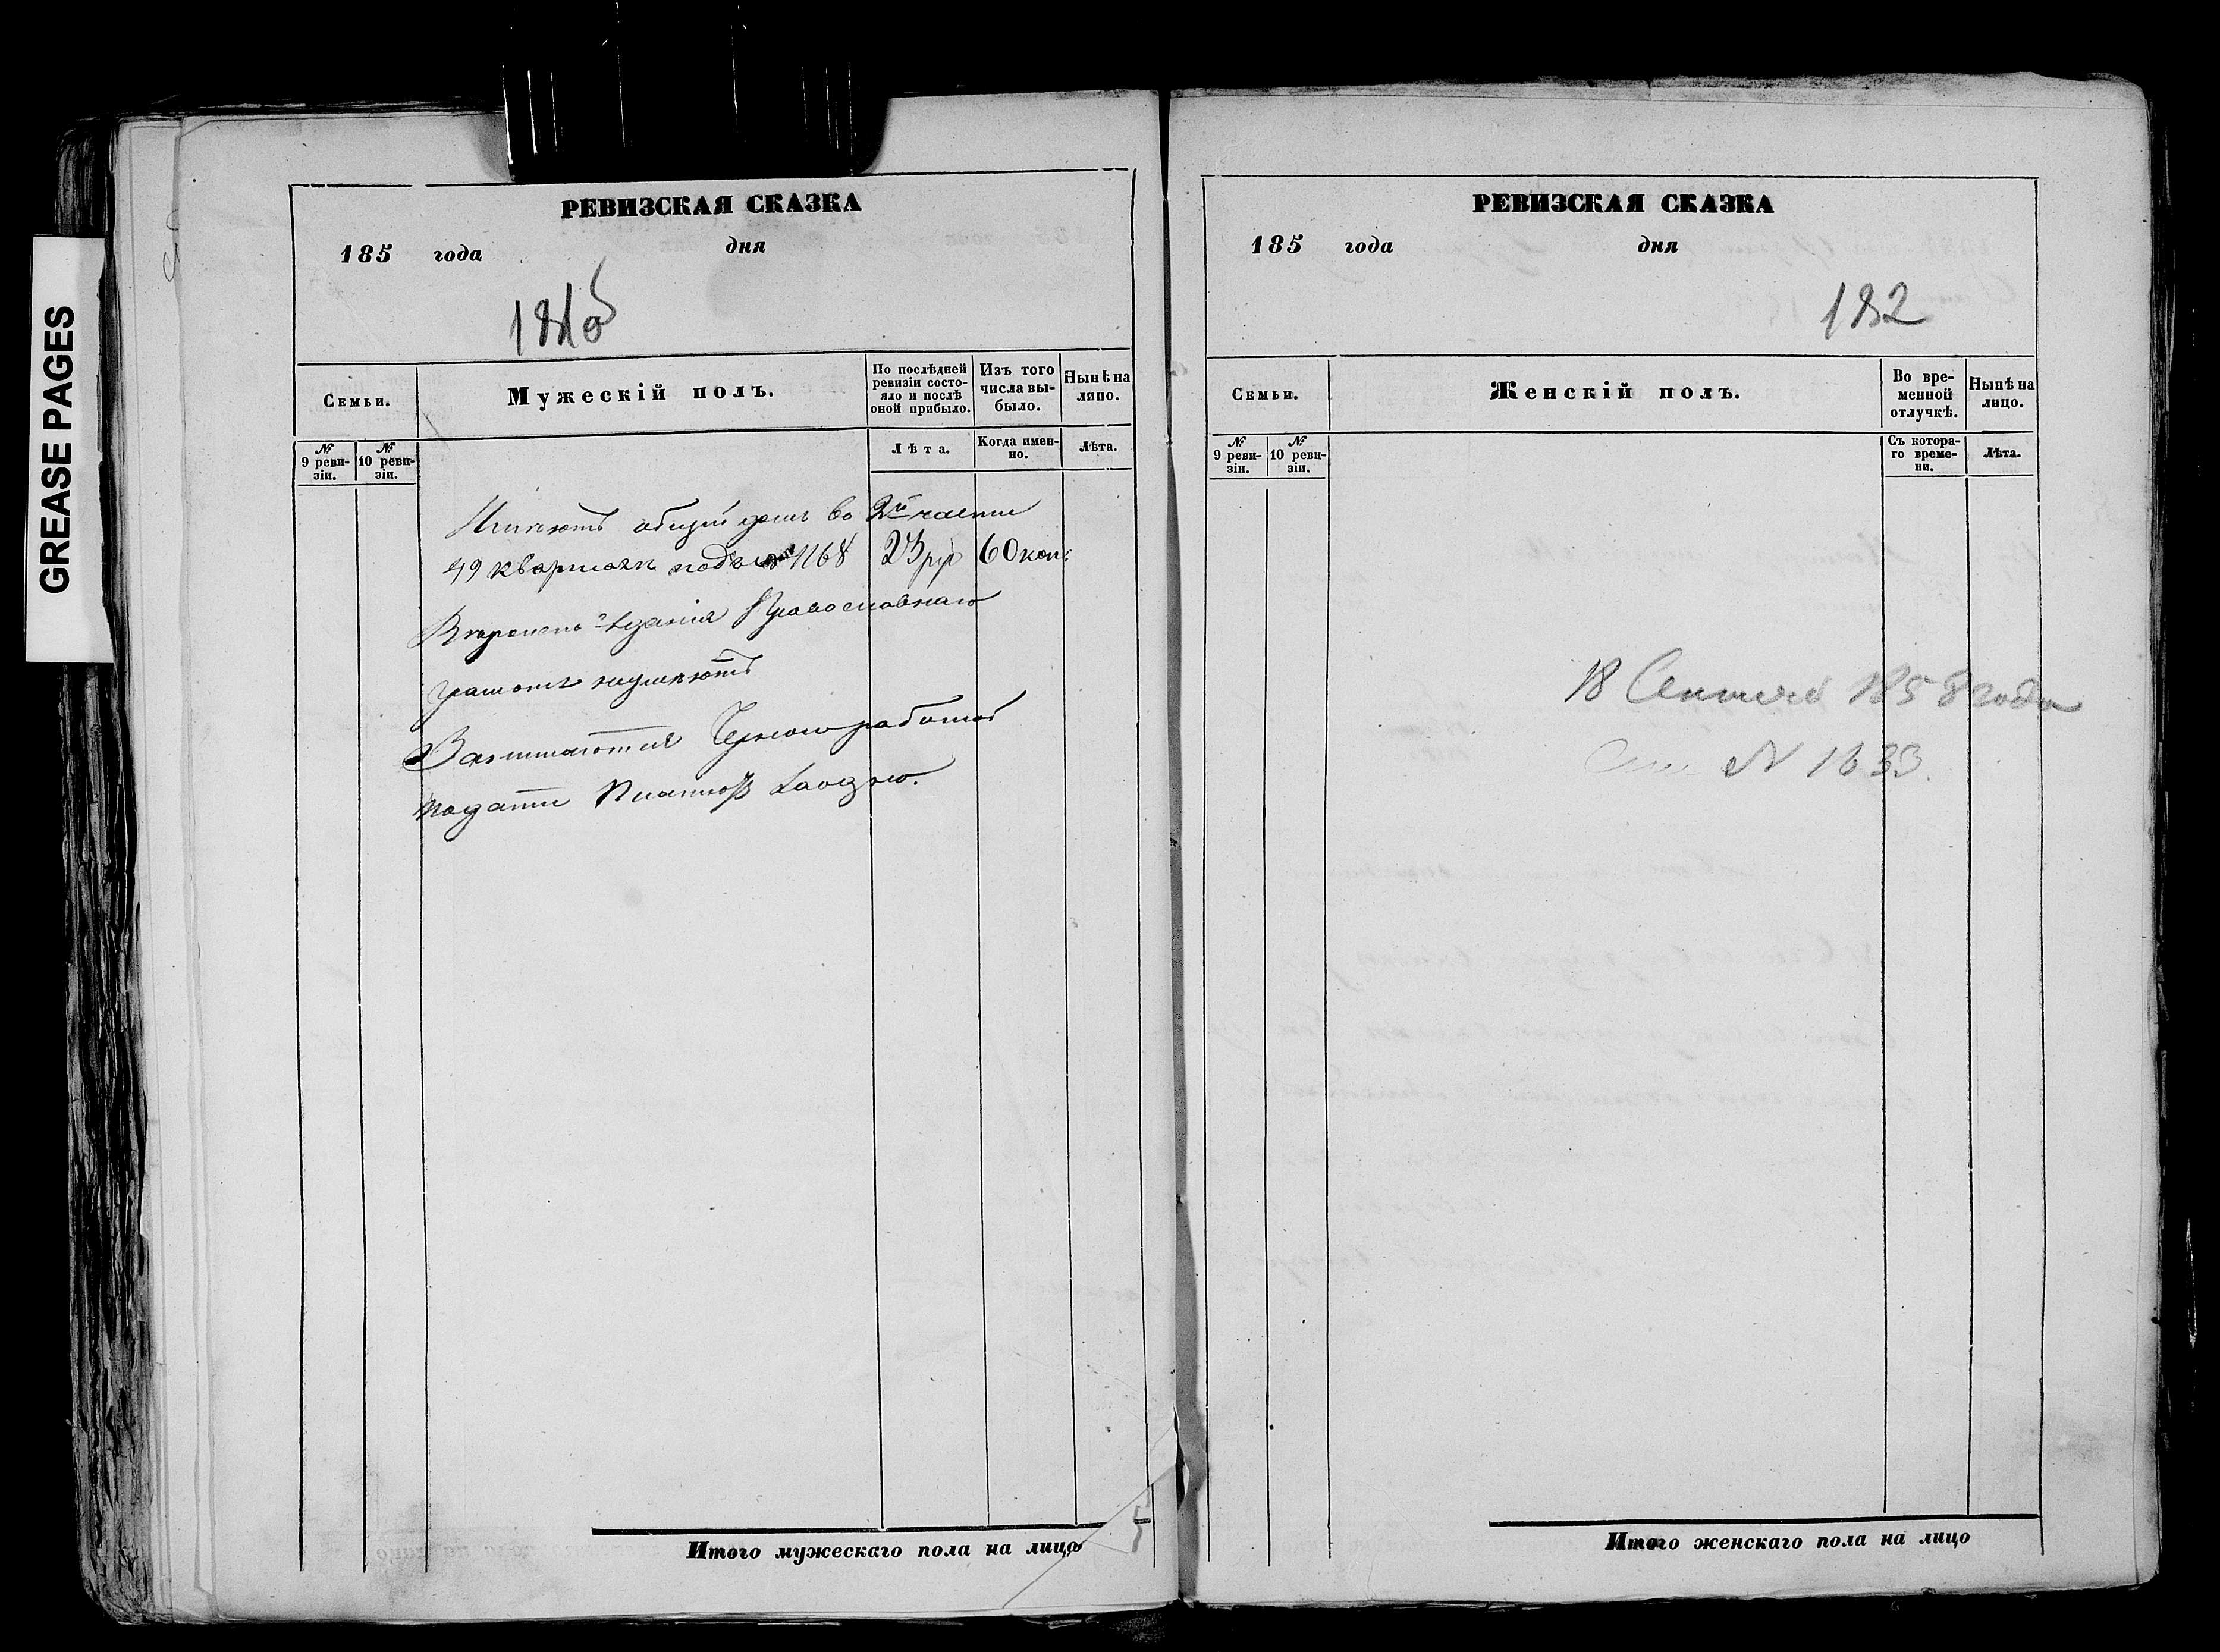 GREASE PAGES
РЕВИЗСКАЯ СКАЗКА
185 года дня
Семьи.
Мужескій полъ.
По послѣдней ревизіи состояло и послѣ оной прибыло.
Изъ того числа выбыло.
Нынѣ на лицо.
№ 9 ревизіи.
№ 10 ревизіи.
Лѣта.
Когда именно.
Лѣта.
Имѣютъ общій домъ во 2й части
49 кварталѣ подъ № 1168 23 ру 60 коп:
Православнаго
грамотѣ неумѣютъ
Занимаются Черною работой
подати
Итого мужескаго пола на лицо
5
РЕВИЗСКАЯ СКАЗКА
185 года дня
182
Семьи.
Женскій полъ.
Во временной отлучкѣ.
Нынѣ на лицо.
№ 9 ревизіи.
№ 10 ревизіи.
Съ котораго времени.
Лѣта.
18 1858 года
N 1633.
Итого женскаго пола на лицо